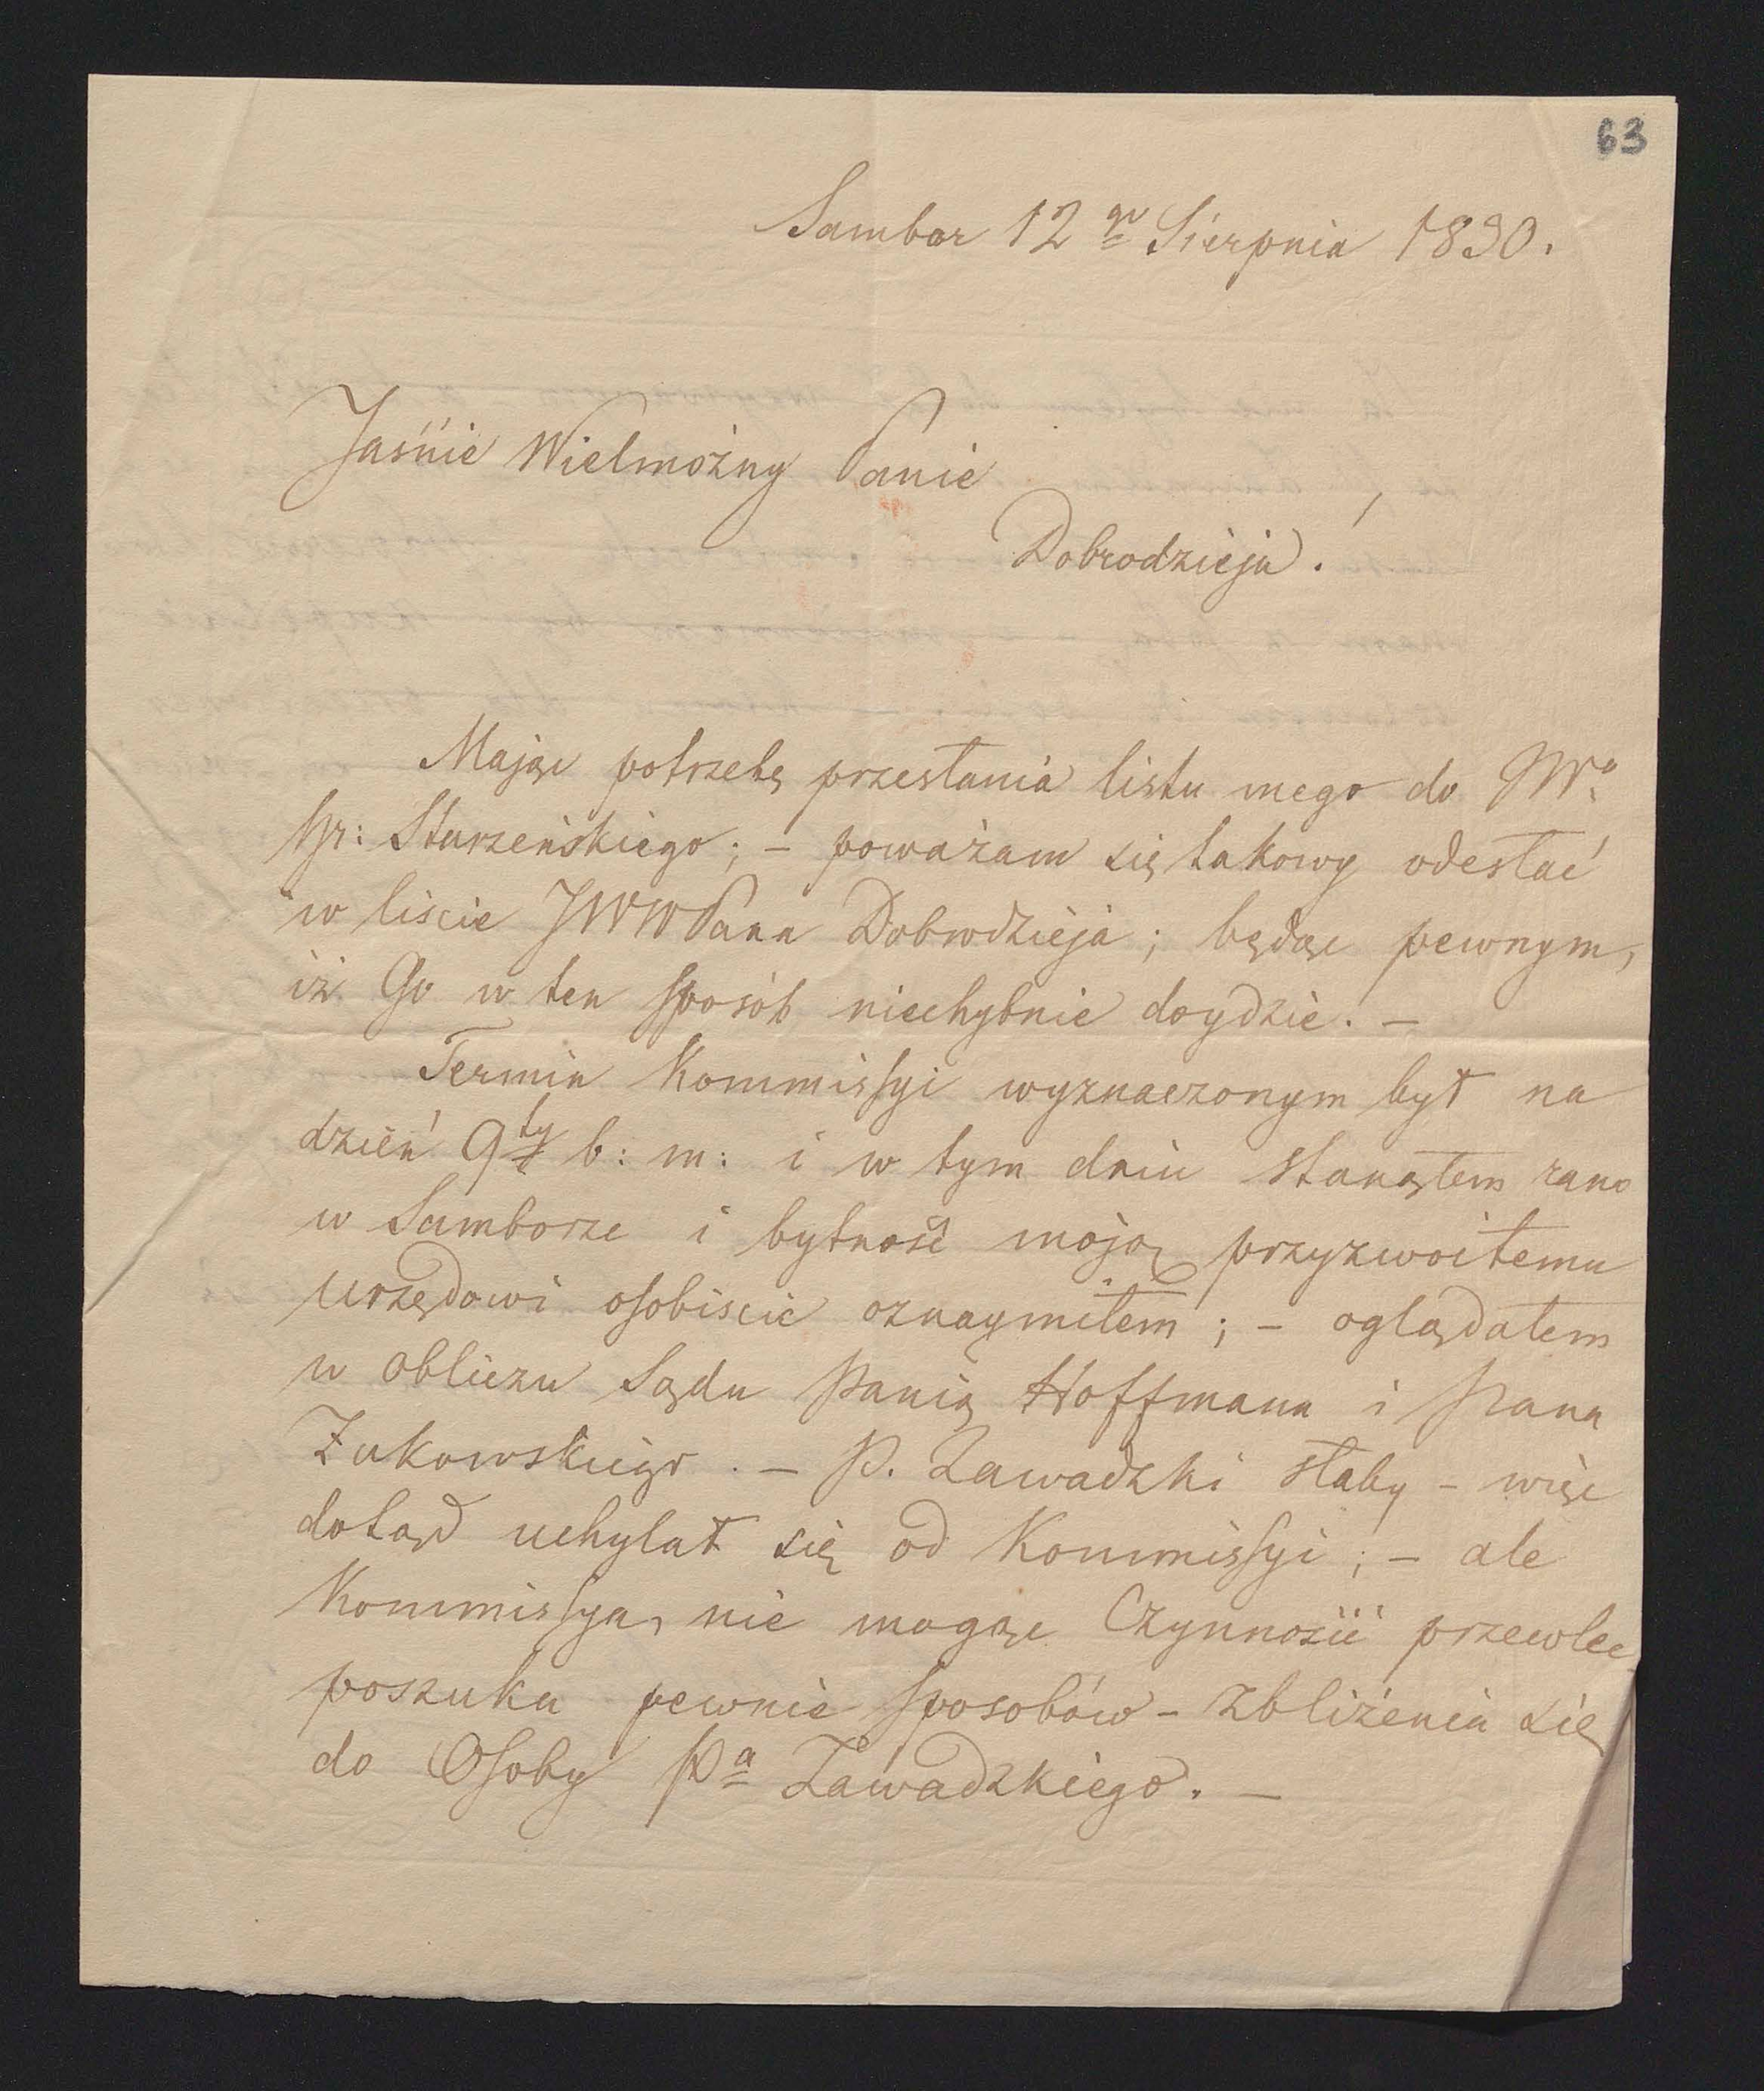 63
Sambor 12go Sierpnia 1830.
Jaśnie Wielmożny Panie
Dobrodzieju!
Mając potrzebę przesłania listu mego do JWo
Hr: Starzeńskiego; – poważam się takowy odesłać
w liście JWWPana Dobrodzieja; będąc pewnym,
iż Go w ten sposób niechybnie doydzie. –
Termin Kommissyi wyznaczonym był na
dzień 9ty b: m: i w tym dniu stanąłem rano
w Samborze i bytność moją przyzwoitemu
urzędowi osobiscie oznaymiłem; – oglądałem
w obliczu Sądu Panią Hoffmann i Pana
Żukowskiego. – P. Zawadzki słaby – więc
dotąd uchylał się od Kommissyi; – ale
Kommissya, nie mogąc Czynności przewlec
poszuka pewnie sposobów – zbliżenia się
do Osoby Pa Zawadzkiego. –